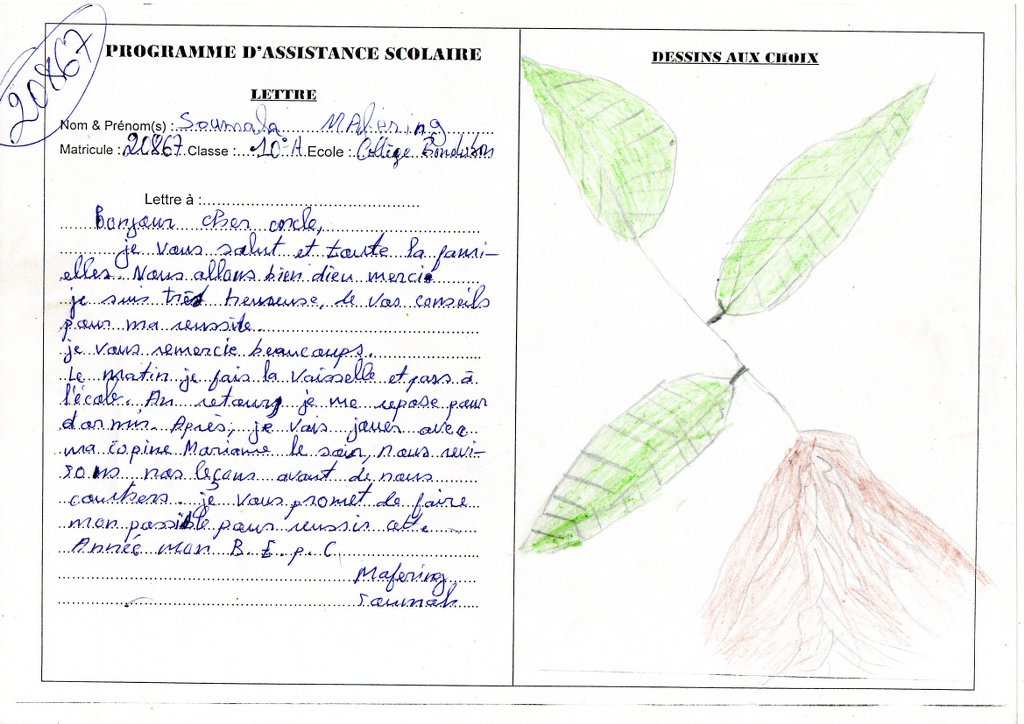 20867
PROGRAMME D'ASSISTANCE SCOLAIRE
LETTRE
Nom & Prénom(s) : Soumala MAfering
Matricule : 20867 Classe : 10°A Ecole : Collège
Lettre à :
Bonjour cher oncle,
je vous salut et toute la fami-
elles. Nous allons bien dieu mercie
je suis très heureuse, de vos conseils
pour ma reussite.
je vous remercie beaucoups.
Le matin je fais la vaisselle et pars à
l'école. Au retour, je me repose pour
dormir. Après, je vais jouer avec
ma copine Mariame le soir, nous revi-
sons nos leçons avant de nous
couchers. je vous promet de faire
mon possible pour reussir cett.
Année mon B. E. p. C
Mafering
Soumah
DESSINS AUX CHOIX